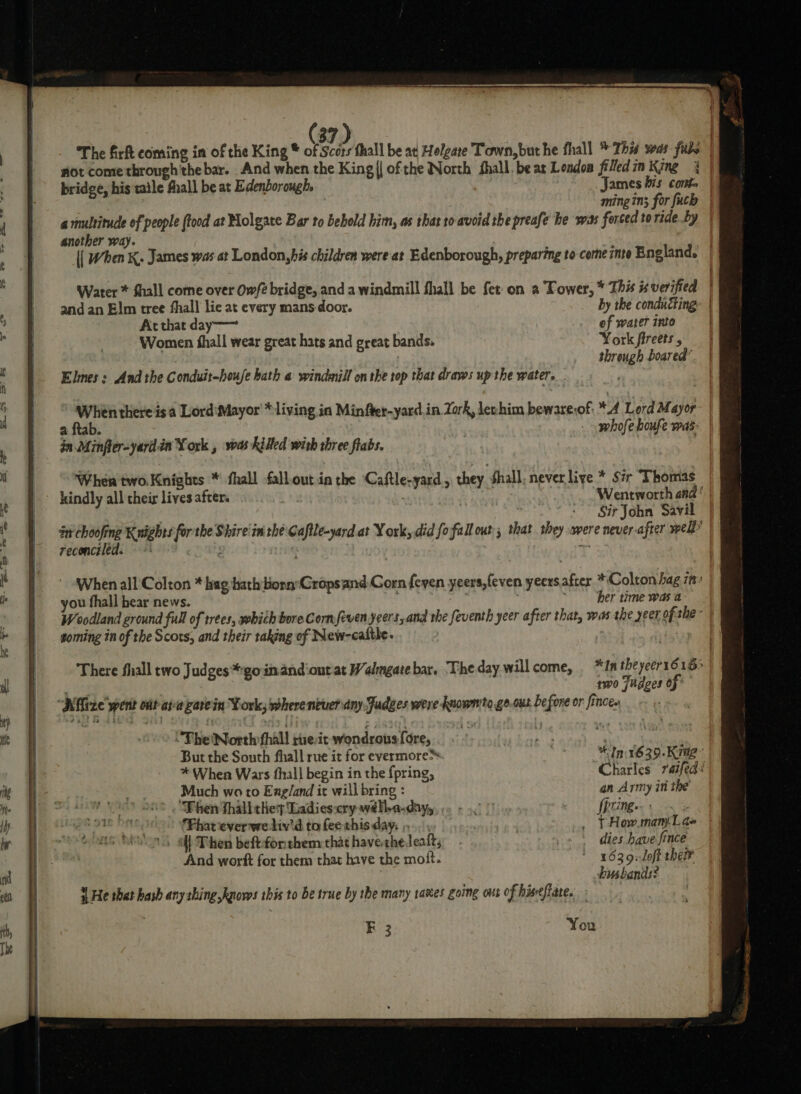 (37)
The firſt coming in of the King * of Scots ſhall be at Holgate Town, but he ſhall * This was fulfilled in King
not come through the bar. And when the King || of the North ſhall be at London
bridge, his taile ſhall be at Edenborough. James his com-
ming in; for ſuch
a multitude of people ſtood at Holgate Bar to behold him, as that to avoid the preaſe he was forced to ride by
another way.
|| When K. James was at London, his children were at Edenborough, preparing to come into England.
Water * ſhall come over Owſe bridge, and a windmill ſhall be ſet on a Tower, * This is verified
and an Elm tree ſhall lie at every mans door. by the conducting
At that day—— of water into
Women ſhall wear great hats and great bands. York ſtreets,
through boared
Elmes: And the Conduit-houſe hath a windmill on the top that draws up the water.
When there is a Lord Mayor * living in Minſter-yard in York, let him beware of * A Lord Mayor
a ſtab. whoſe houſe was
in Minſter-yard in York, was killed with three ſtabs.
When two Knights * ſhall fall out in the Caſtle-yard, they ſhall never live * Sir Thomas
kindly all their lives after. Wentworth and
Sir John Savil
in chooſing Knights for the Shire in the Caſtle-yard at York, did ſo fall out, that they were never after well
reconciled.
When all Colton * hag hath born Crops and Corn ſeven yeers, ſeven yeers after * Colton hag in
you ſhall hear news. her time was a
Woodland ground full of trees, which bore Corn ſeven yeers, and the ſeventh yeer after that, was the yeer of the
coming in of the Scots, and their taking of New-caſtle.
There ſhall two Judges * go in and out at Walmgate bar. The day will come, * In the yeer 1616
two Judges of
Aſſize went out at a gate in York, where never any Judges were known to go out before or ſince.
The North ſhall rue it wondrous ſore,
But the South ſhall rue it for evermore * * In 1639. King
* When Wars ſhall begin in the ſpring, Charles raiſed
Much wo to England it will bring: an Army in the
Then ſhall they Ladies cry well-a-day, ſpring.
That ever we liv'd to ſee this day. † How many La-
|| Then beſt for them that have the leaſt, dies have ſince
And worſt for them that have the moſt. 1639. loſt their
husbands?
|| He that hath any thing, knows this to be true by the many taxes going out of his eſtate.
F 3 You